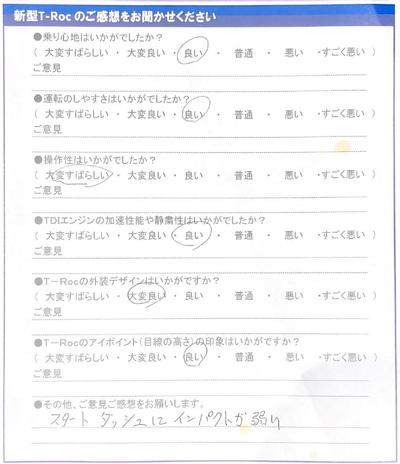 新型T-Roc のご感想をお聞かせください
●乗り心地はいかがでしたか？
( 大変すばらしい ・ 大変良い ・ 良い ・ 普通 ・ 悪い ・すごく悪い )
ご意見
●運転のしやすさはいかがでしたか？
( 大変すばらしい ・ 大変良い ・ 良い ・ 普通 ・ 悪い ・すごく悪い )
ご意見
●操作性はいかがでしたか？
( 大変すばらしい ・ 大変良い ・ 良い ・ 普通 ・ 悪い ・すごく悪い )
ご意見
●TDIエンジンの加速性能や静粛性はいかがでしたか？
( 大変すばらしい ・ 大変良い ・ 良い ・ 普通 ・ 悪い ・すごく悪い )
ご意見
●T－Rocの外装デザインはいかがですか？
( 大変すばらしい ・ 大変良い ・ 良い ・ 普通 ・ 悪い ・すごく悪い )
ご意見
●T－Rocのアイポイント(目線の高さ)の印象はいかがですか？
( 大変すばらしい ・ 大変良い ・ 良い ・ 普通 ・ 悪い ・すごく悪い )
ご意見
●その他、ご意見ご感想をお願いします。
スタートダッシュにインパクトが弱い